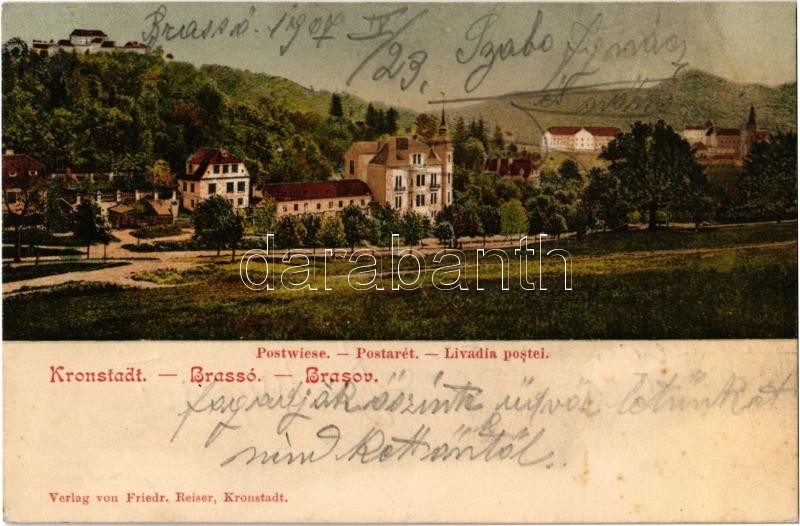 Brassó. 1907 IV/23.
Szabo Ignác
darabanth
Postwiese. — Postarét. — Livadia poștei.
Kronstadt. — Brassó. — Brașov.
fogadják őszinte üdvözletünket
mind kettőntől.
Verlag von Friedr. Reiser, Kronstadt.